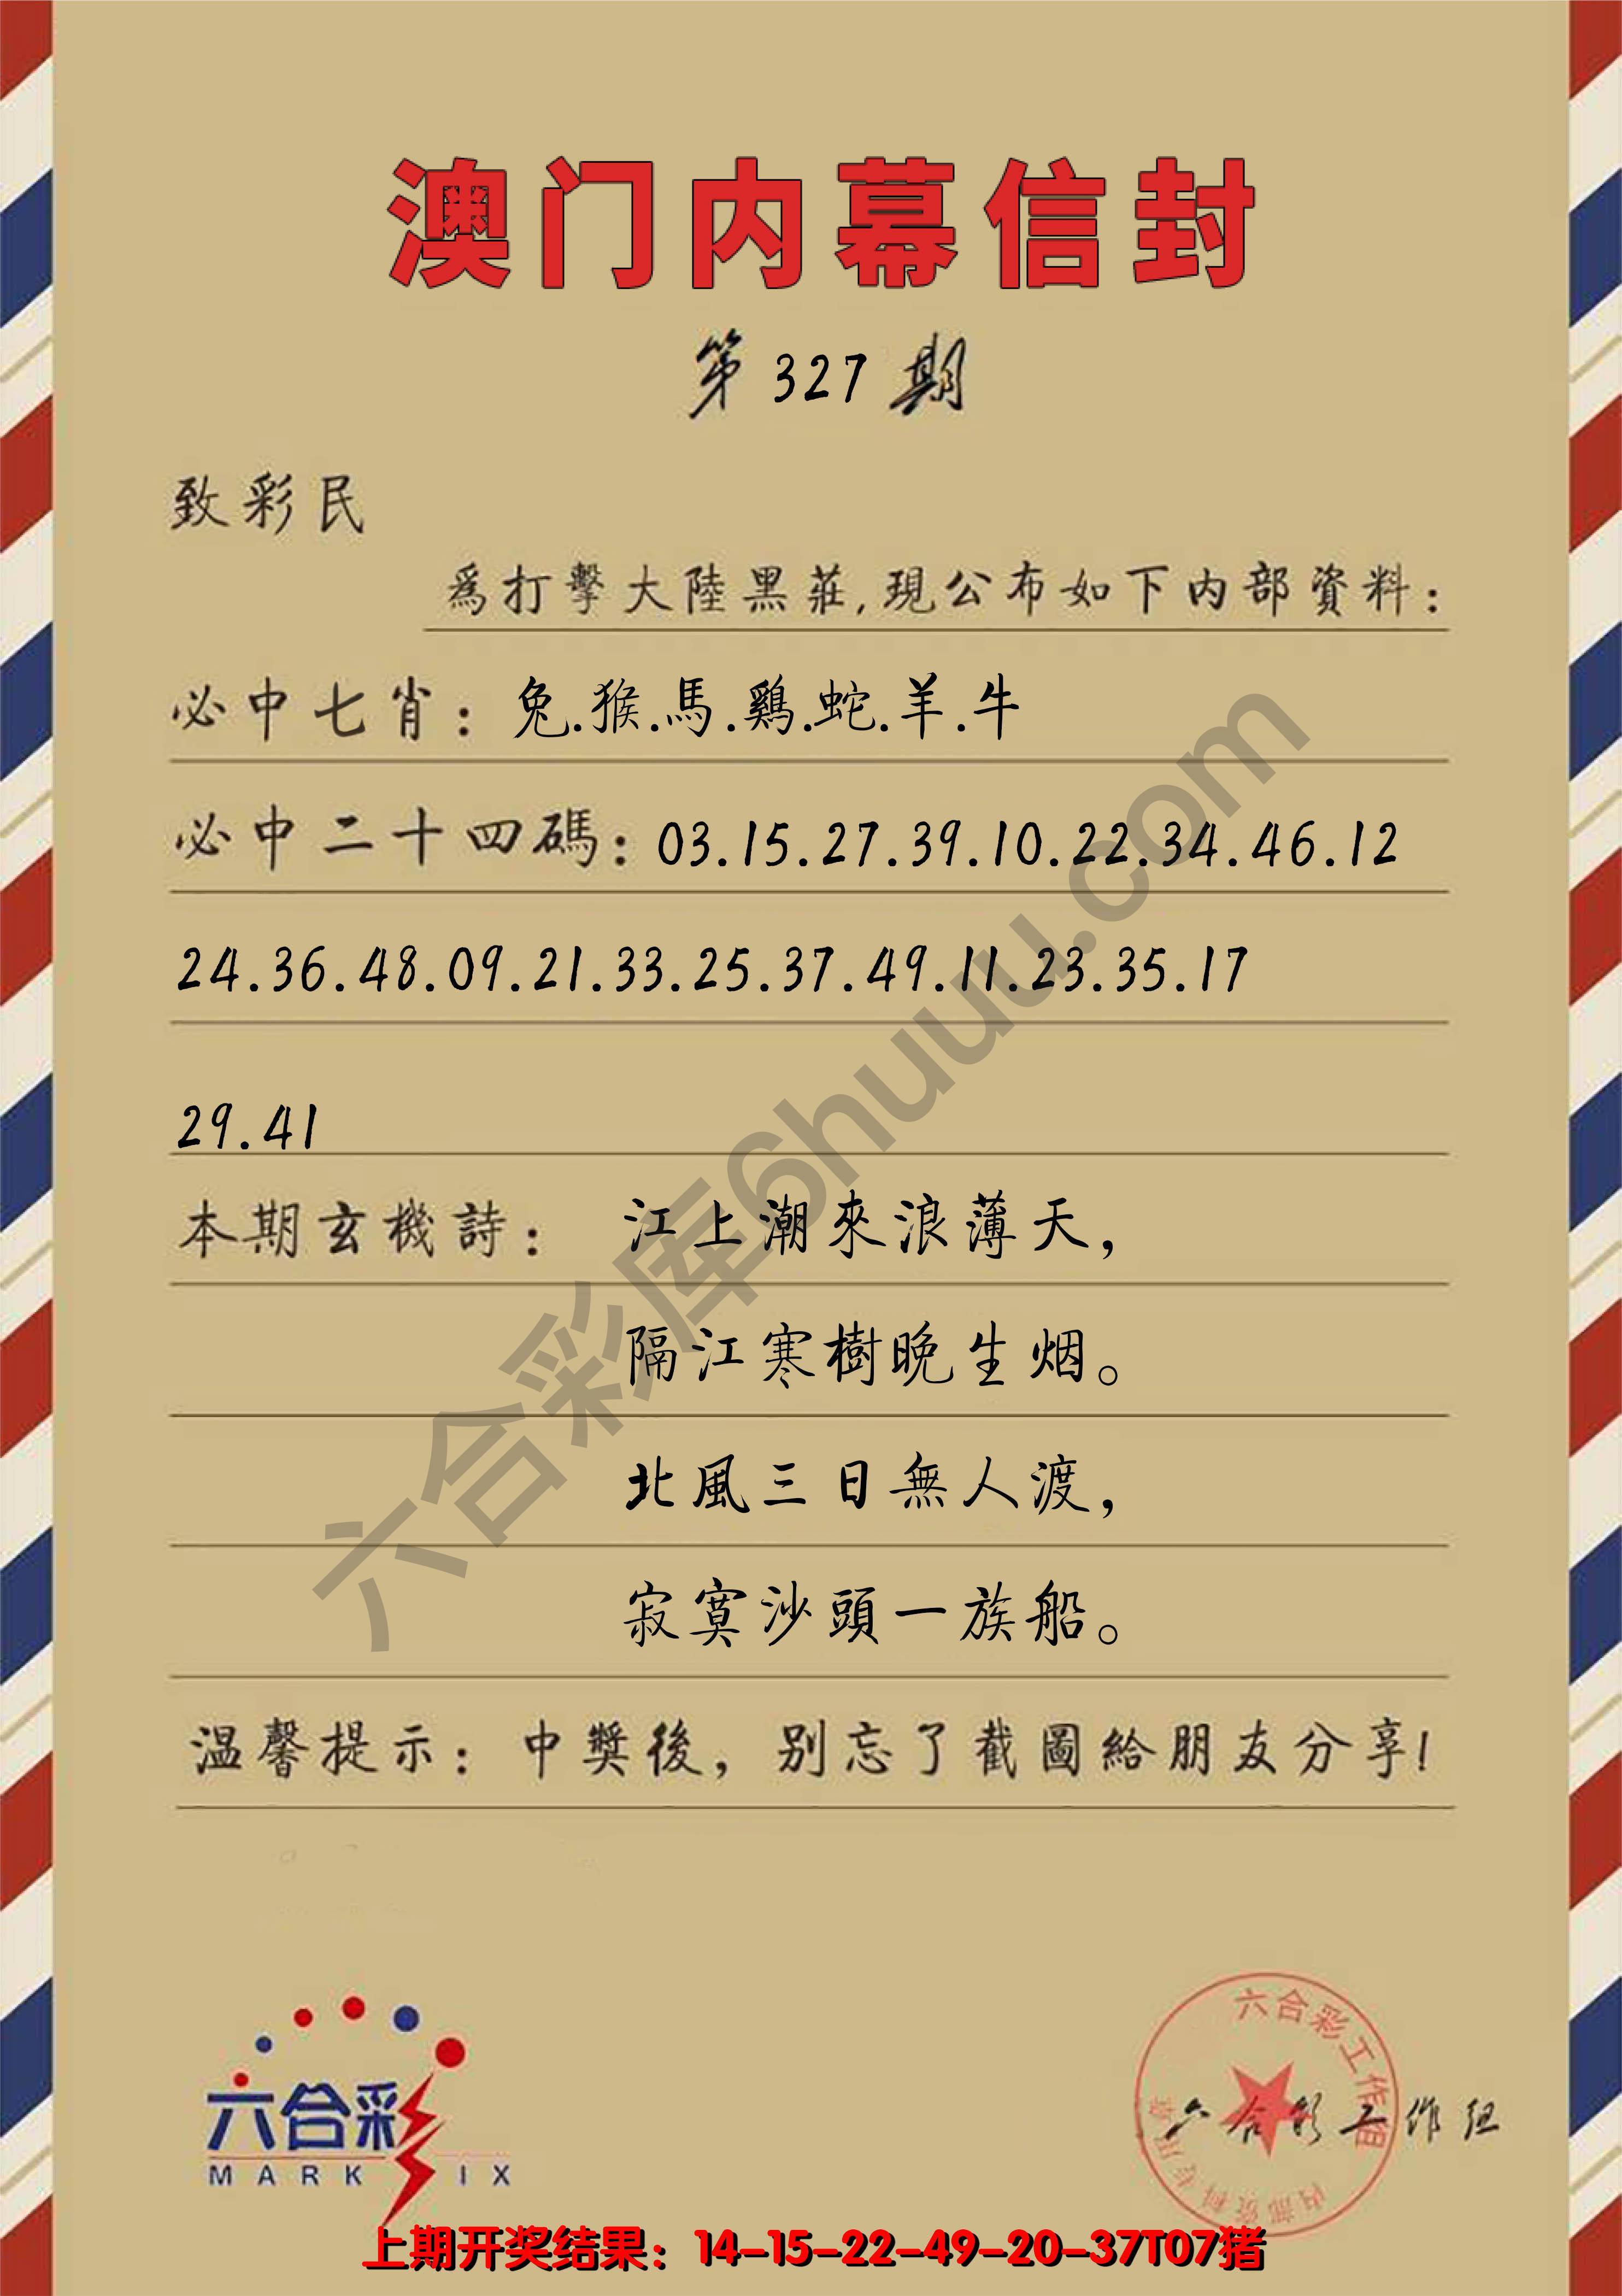 澳门内幕信封
第 327 期
致彩民
爲打擊大陸黑莊,現公布如下内部資料:
必中七肖: 兔.猴.馬.鷄.蛇.羊.牛
必中二十四碼: 03.15.27.39.10.22.34.46.12
24.36.48.09.21.33.25.37.49.11.23.35.17
29.41
本期玄機詩: 江上潮來浪薄天,
隔江寒樹晚生烟。
北風三日無人渡,
寂寞沙頭一族船。
温馨提示: 中獎後, 别忘了截圖給朋友分享!
六合彩库6huuu.com
六合彩
MARK IX
六合彩工作组
内部资料专用章
六合彩工作组
上期开奖结果: 14-15-22-49-20-37T07猪